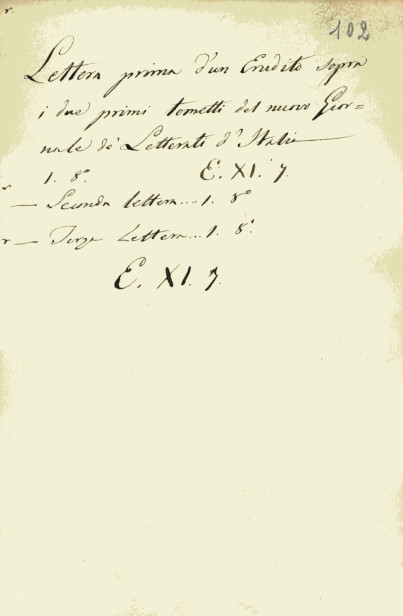 102
Lettera prima d'un Erudito sopra
i due primi tometti del nuovo Gior=
nale de' Letterati d'Italia
1. 8.° E. XI. 7.
— Seconda lettera... 1. 8°
— Terza Lettera... 1. 8.°
E. XI. 7.